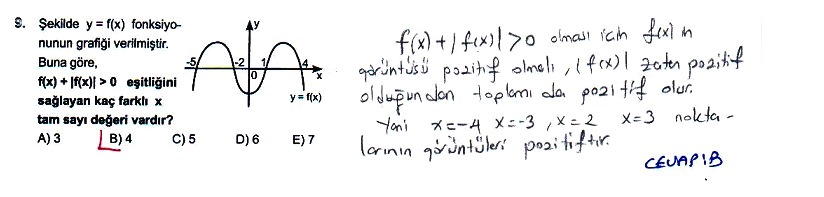 9. Şekilde y = f(x) fonksiyo-
nunun grafiği verilmiştir.
Buna göre,
f(x) + |f(x)| > 0 eşitliğini
sağlayan kaç farklı x
tam sayı değeri vardır?
A) 3 B) 4 C) 5 D) 6 E) 7
y
-5 -2 0 1 4 x
y = f(x)
f(x) + |f(x)| > 0 olması için f(x) in
görüntüsü pozitif olmalı, |f(x)| zaten pozitif
olduğundan toplamı da pozitif olur.
Yani x=-4 x=-3, x=2 x=3 nokta-
larının görüntüleri pozitiftir.
CEVAP B